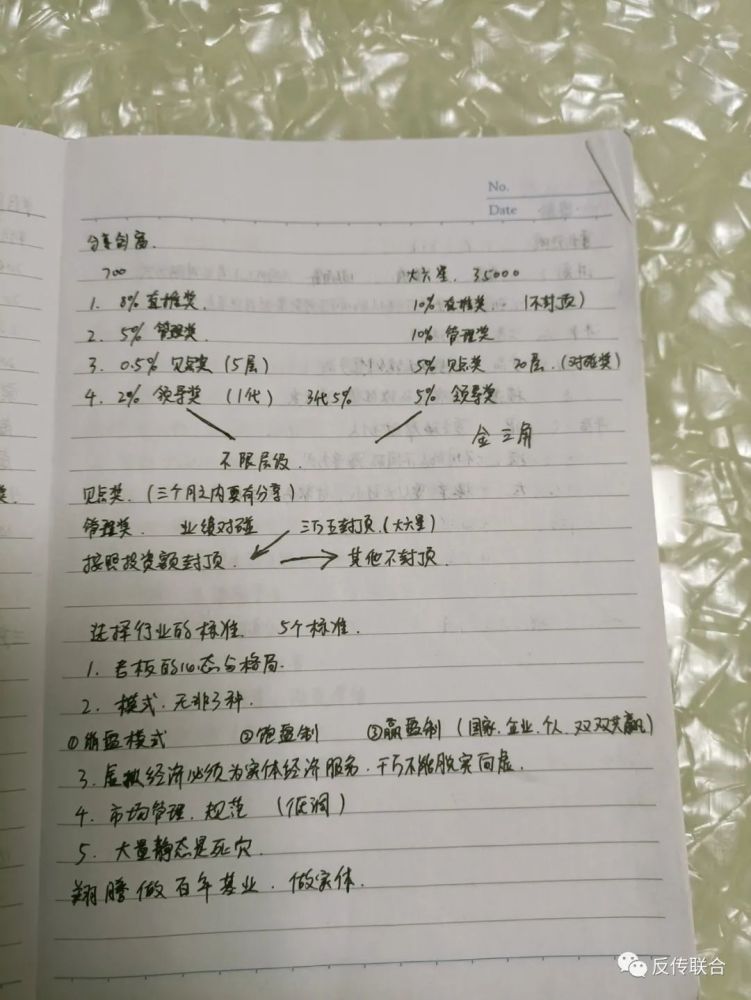 No.
Date
分享创富.
700 大六星. 35000
1. 8% 直推奖. 10% 直推奖. (不封顶)
2. 5% 管理奖 10% 管理奖
3. 0.5% 见点奖 (5层) 5% 见点奖 20层. (对碰奖)
4. 2% 领导奖 (1代) 3代5% 5% 领导奖
金三角
不限层级.
见点奖. (三个月之内要有分享)
管理奖. 业绩对碰 三万五封顶. (大六星)
按照投资额封顶. 其他不封顶.
选择行业的标准. 5个标准.
1. 老板的心态与格局.
2. 模式. 无非3种.
①崩盘模式 ②跑盘制 ③赢盈制 (国家. 企业. 个人. 双双共赢)
3. 虚拟经济必须为实体经济服务. 千万不能脱实向虚.
4. 市场管理. 规范 (低调)
5. 大量静态是死穴.
翔腾做百年基业. 做实体.
反传联合